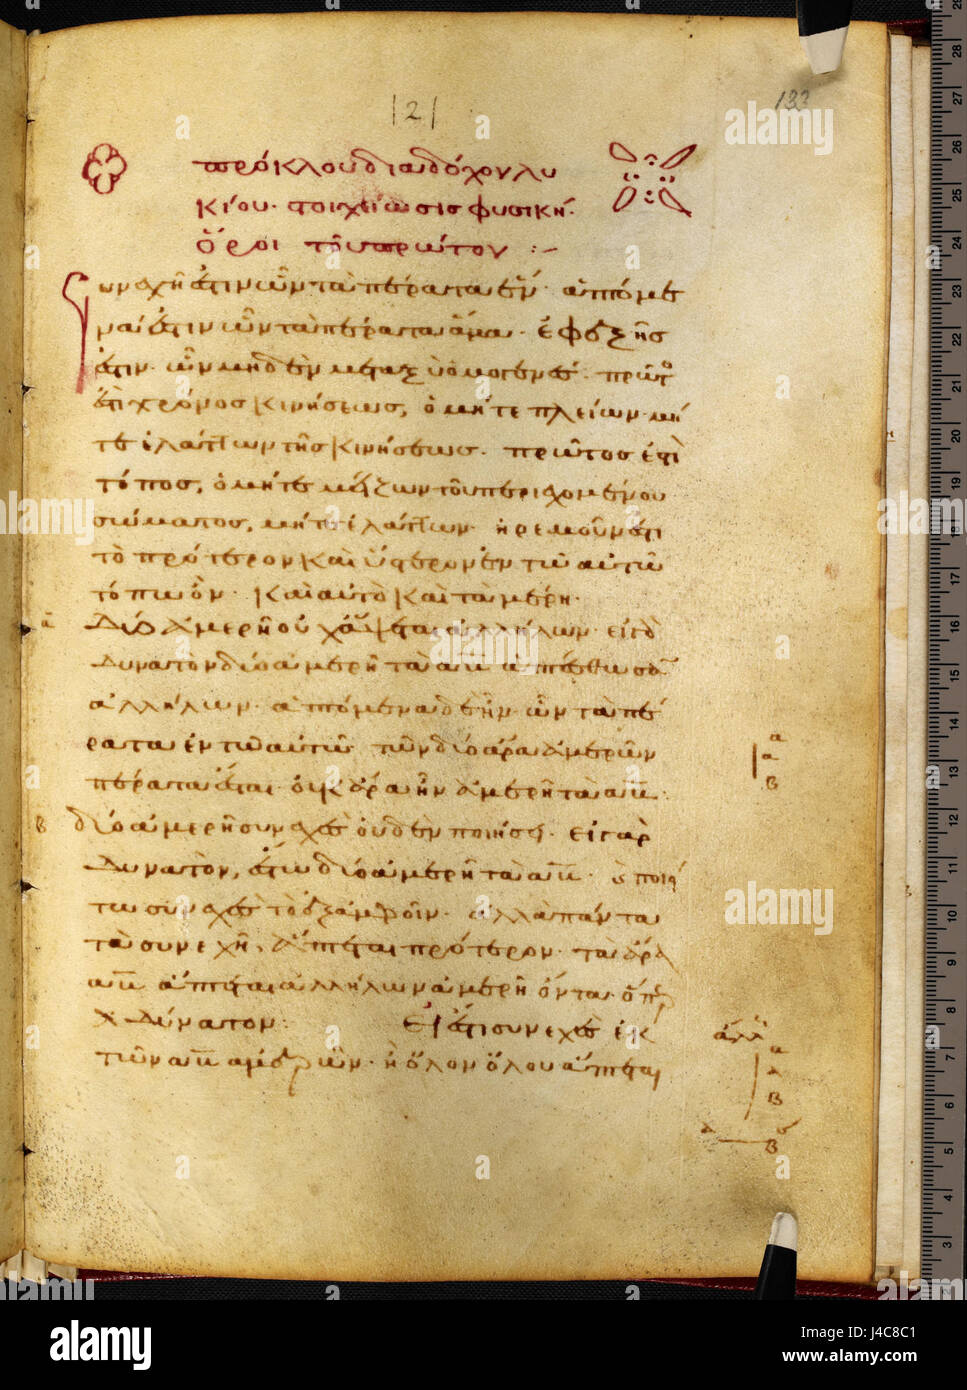 121
133
πρόκλου διαδόχου λυ
κίου στοιχείωσις φυσική.
ὅροι τοῦ πρώτου :-
Συνεχῆ ἐστιν ὧν τὰ πέρατα ἕν· ἁπτόμε
να ἐστιν ὧν τὰ πέρατα ἅμα· ἐφεξῆς
ἐστιν· ὧν μηδὲν μεταξὺ ὁμογενές· πρῶτος
ἐστι χρόνος κινήσεως, ὁ μήτε πλείων μή
τε ἐλάττων τῆς κινήσεως. πρῶτος ἐστὶ
τόπος, ὁ μήτε μείζων τοῦ περιεχομένου
σώματος, μήτε ἐλάττων· ἠρεμοῦν ἐστι
τὸ πρότερον καὶ ὕστερον ἐν τῶ αὐτῶ
τόπω ὂν· καὶ αὐτὸ καὶ τὰ μέρη.
α Δύο ἀμερῆ οὐχ ἅψεται ἀλλήλων· εἰ γὰρ
δυνατὸν δύο ἀμερῆ τὰ αβ ἁπτέσθωσαν
ἀλλήλων· ἁπτόμενα δὲ ἦν· ὧν τὰ πέ
ρατα ἐν τῶ αὐτῶ· τῶν δύο ἄρα ἀμερῶν
πέρατα ἔσται· οὐκ ἄρα ἦν ἀμερῆ τὰ αβ.
β δύο ἀμερῆ συνεχὲς οὐδὲν ποιήσει· εἰ γὰρ
δυνατὸν, ἔστω δύο ἀμερῆ τὰ αβ· καὶ ποιεί
τω συνεχὲς τὸ ἐξ ἀμφοῖν· ἀλλὰ πάντα
τὰ συνεχῆ, ἅπτεται πρότερον· τὰ ἄρα
αβ ἅπτεται ἀλλήλων ἀμερῆ ὄντα· ὅπερ
ἀδύνατον: Εἰ ἔστι συνεχὲς ἐκ
τῶν αβ ἀμερῶν· ἢ ὅλον ὅλου ἅπτεται
α
α
β
ἄλλως
α
β
β